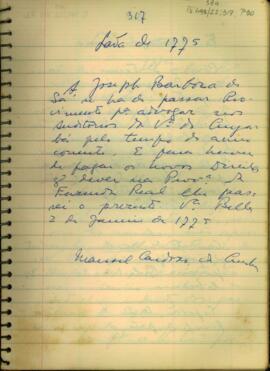 317
João de 1775
A Joseph Barboza de
Sá, se ha de passar Pro-
vimento pª advogar nos
auditorios da Vª do Cuya-
bá pelo tempo de anno
corrente. E para haver
de pagar os novos Direitos
q dever na Provª da
Fazenda Real lhe pas-
sei o prezente Vª Bella
2 de Janeiro de 1775
Manoel Cardozo da Cunha